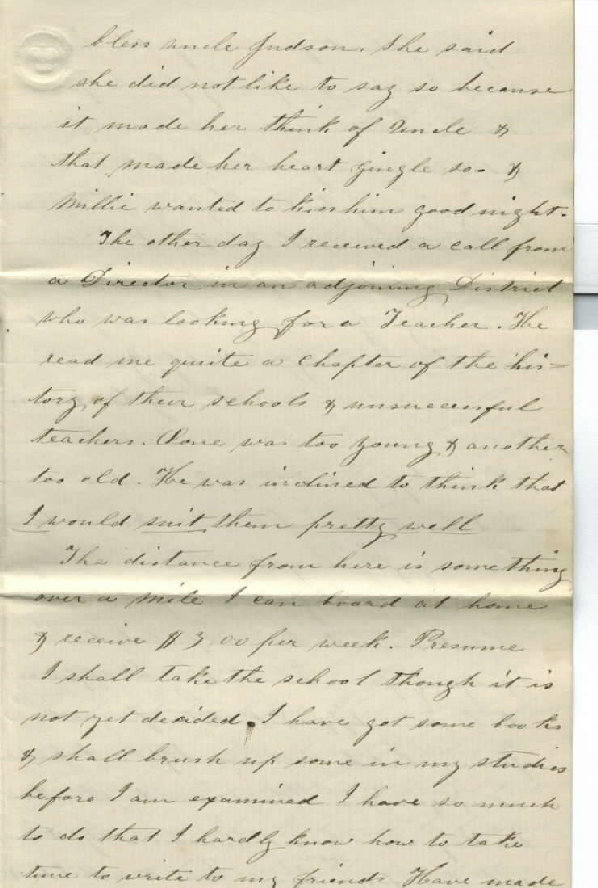 bless uncle Judson. She said
she did not like to say so because
it made her think of Uncle &
that made her heart jingle so- &
Millie wanted to kiss him good night.
The other day I received a call from
a Director in an adjoining District
who was looking for a Teacher. He
read me quite a chapter of the his=
tory of their schools & unsuccessful
teachers. One was too young & another
too old. He was inclined to think that
I would suit them pretty well
The distance from here is something
over a mile I can board at home
& receive $3.00 per week. Presume
I shall take the school though it is
not yet decided. I have got some books
& shall brush up some in my studies
before I am examined I have so much
to do that I hardly know how to take
time to write to my friends. Have made